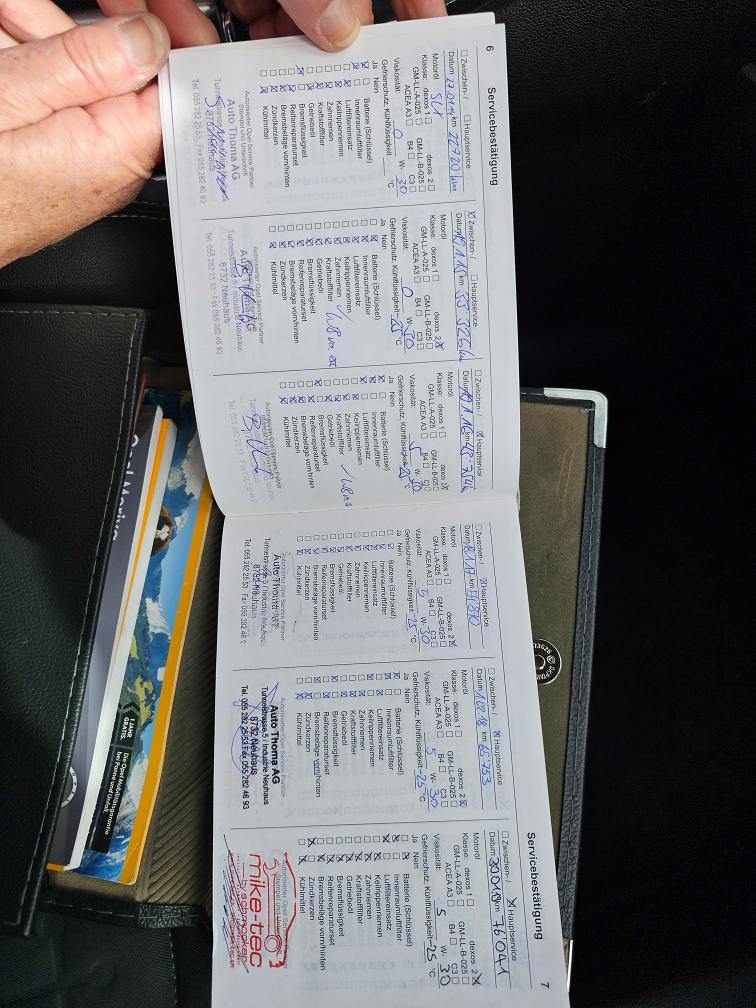 6
Servicebestätigung
Zwischen- / Hauptservice
Datum 27.01.14 km 22720 km
Motoröl SLX
Klasse: dexos 1 dexos 2
GM-LL-A-025 GM-LL-B-025
ACEA A3 B4 C3
Viskosität: 0 W- 30
Gefrierschutz, Kühlflüssigkeit °C
Ja Nein
Batterie (Schlüssel)
Innenraumluftfilter
Luftfiltereinsatz
Keilrippenriemen
Zahnriemen
Kraftstofffilter
Getriebeöl
Bremsflüssigkeit
Reifenreparaturset
Bremsbeläge vorn/hinten
Zündkerzen
Kühlmittel
Autorisierter Opel Service Partner
Stempel und Unterschrift
Auto Thoma AG
Tel. 055 282 25 53, Fax 055 282 46 93
Zwischen- / Hauptservice
Datum km
Motoröl
Klasse: dexos 1 dexos 2
GM-LL-A-025 GM-LL-B-025
ACEA A3 B4 C3
Viskosität: 0 W- 30
Gefrierschutz, Kühlflüssigkeit -25 °C
Ja Nein
Batterie (Schlüssel)
Innenraumluftfilter
Luftfiltereinsatz
Keilrippenriemen
Zahnriemen
Kraftstofffilter
Getriebeöl
Bremsflüssigkeit
Reifenreparaturset
Bremsbeläge vorn/hinten
Zündkerzen
Kühlmittel
Autorisierter Opel Service Partner
Tunnelstrasse 5 / Industrie Neuhaus
8732 Neuhaus
Tel. 055 282 25 53 Fax 055 282 46 93
Zwischen- / Hauptservice
Datum km
Motoröl
Klasse: dexos 1 dexos 2
GM-LL-A-025 GM-LL-B-025
ACEA A3 B4 C3
Viskosität: 5 W- 30
Gefrierschutz, Kühlflüssigkeit -25 °C
Ja Nein
Batterie (Schlüssel)
Innenraumluftfilter
Luftfiltereinsatz
Keilrippenriemen
Zahnriemen
Kraftstofffilter
Getriebeöl
Bremsflüssigkeit
Reifenreparaturset
Bremsbeläge vorn/hinten
Zündkerzen
Kühlmittel
Zwischen- / Hauptservice
Datum km
Motoröl
Klasse: dexos 1 dexos 2
GM-LL-A-025 GM-LL-B-025
ACEA A3 B4 C3
Viskosität: 5 W- 30
Gefrierschutz, Kühlflüssigkeit -25 °C
Ja Nein
Batterie (Schlüssel)
Innenraumluftfilter
Luftfiltereinsatz
Keilrippenriemen
Zahnriemen
Kraftstofffilter
Getriebeöl
Bremsflüssigkeit
Reifenreparaturset
Bremsbeläge vorn/hinten
Zündkerzen
Kühlmittel
Autorisierter Opel Service Partner
Auto Thoma AG
Tunnelstrasse 5 / Industrie Neuhaus
8732 Neuhaus
Tel. 055 282 25 53 Fax 055 282 46
Zwischen- / Hauptservice
Datum km 65753
Motoröl
Klasse: dexos 1 dexos 2
GM-LL-A-025 GM-LL-B-025
ACEA A3 B4 C3
Viskosität: 5 W- 30
Gefrierschutz, Kühlflüssigkeit -25 °C
Ja Nein
Batterie (Schlüssel)
Innenraumluftfilter
Luftfiltereinsatz
Keilrippenriemen
Zahnriemen
Kraftstofffilter
Getriebeöl
Bremsflüssigkeit
Reifenreparaturset
Bremsbeläge vorn/hinten
Zündkerzen
Kühlmittel
Autorisierter Opel Service Partner
Auto Thoma AG
Tunnelstrasse 5 / Industrie Neuhaus
8732 Neuhaus
Tel. 055 282 25 53 Fax 055 282 46 93
Servicebestätigung
7
Zwischen- / Hauptservice
Datum km 76041
Motoröl
Klasse: dexos 1 dexos 2
GM-LL-A-025 GM-LL-B-025
ACEA A3 B4 C3
Viskosität: 5 W- 30
Gefrierschutz, Kühlflüssigkeit -25 °C
Ja Nein
Batterie (Schlüssel)
Innenraumluftfilter
Luftfiltereinsatz
Keilrippenriemen
Zahnriemen
Kraftstofffilter
Getriebeöl
Bremsflüssigkeit
Reifenreparaturset
Bremsbeläge vorn/hinten
Zündkerzen
Kühlmittel
Autorisierter Opel Service Partner
mike-tec
Opel Meriva
1 JAHR GRATIS
Die Opel Mobilitätsgarantie
bei Panne und Unfall.